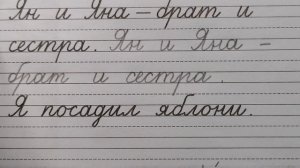 Ян и Яна – брат и
сестра. Ян и Яна –
брат и сестра.
Я посадил яблони.